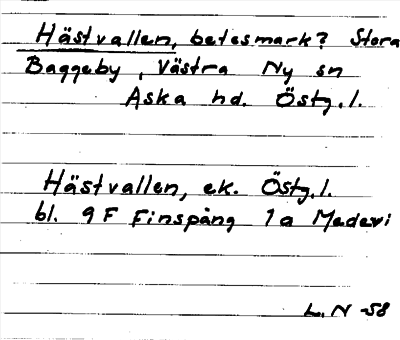 Hästvallen, betesmark? Stora
Baggeby, Västra Ny sn
Aska hd. Östg.l.
Hästvallen, ek. Östg.l.
bl. 9F Finspång 1a Medevi
L.N -58